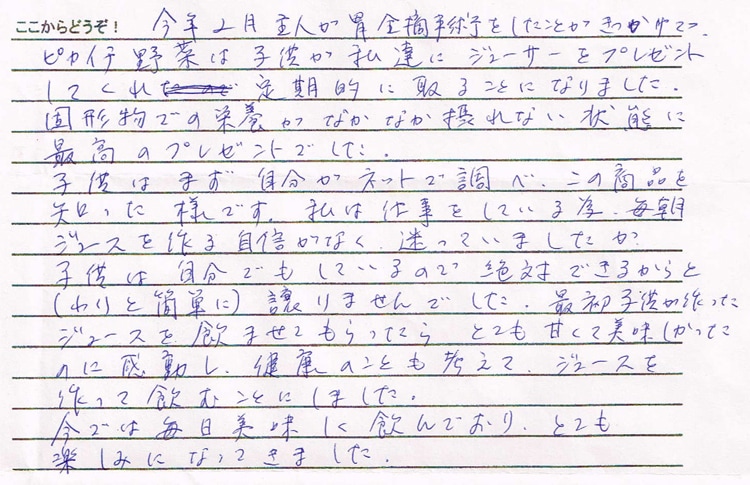 ここからどうぞ！ 今年2月主人が胃全摘手術をしたことがきっかけで、
ピカイチ野菜は子供が私達にジューサーをプレゼント
してくれ 定期的に取ることになりました。
固形物での栄養がなかなか摂れない状態に
最高のプレゼントでした。
子供はまず自分がネットで調べ、この商品を
知った様です。私は仕事をしている為、毎朝
ジュースを作る自信がなく、迷っていましたが
子供は自分でもしているので絶対できるからと
(わりと簡単に)譲りませんでした。最初子供が作った
ジュースを飲ませてもらったら とても甘くて美味しかった
のに感動し、健康のことも考えて、ジュースを
作って飲むことにしました。
今では毎日美味しく飲んでおり、とても
楽しみになってきました。